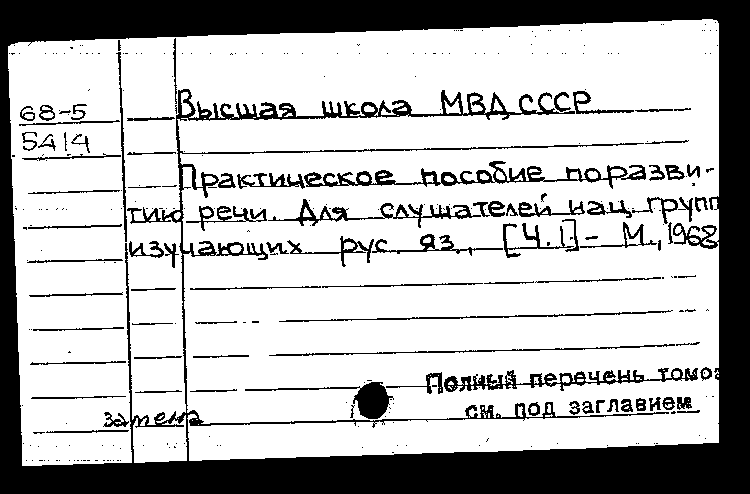 68-5
5414
Высшая школа МВД СССР
Практическое пособие по разви-
тию речи. Для слушателей нац. групп
изучающих рус. яз., [Ч.1] - М., 1968
Полный перечень томов
см. под заглавием
замена